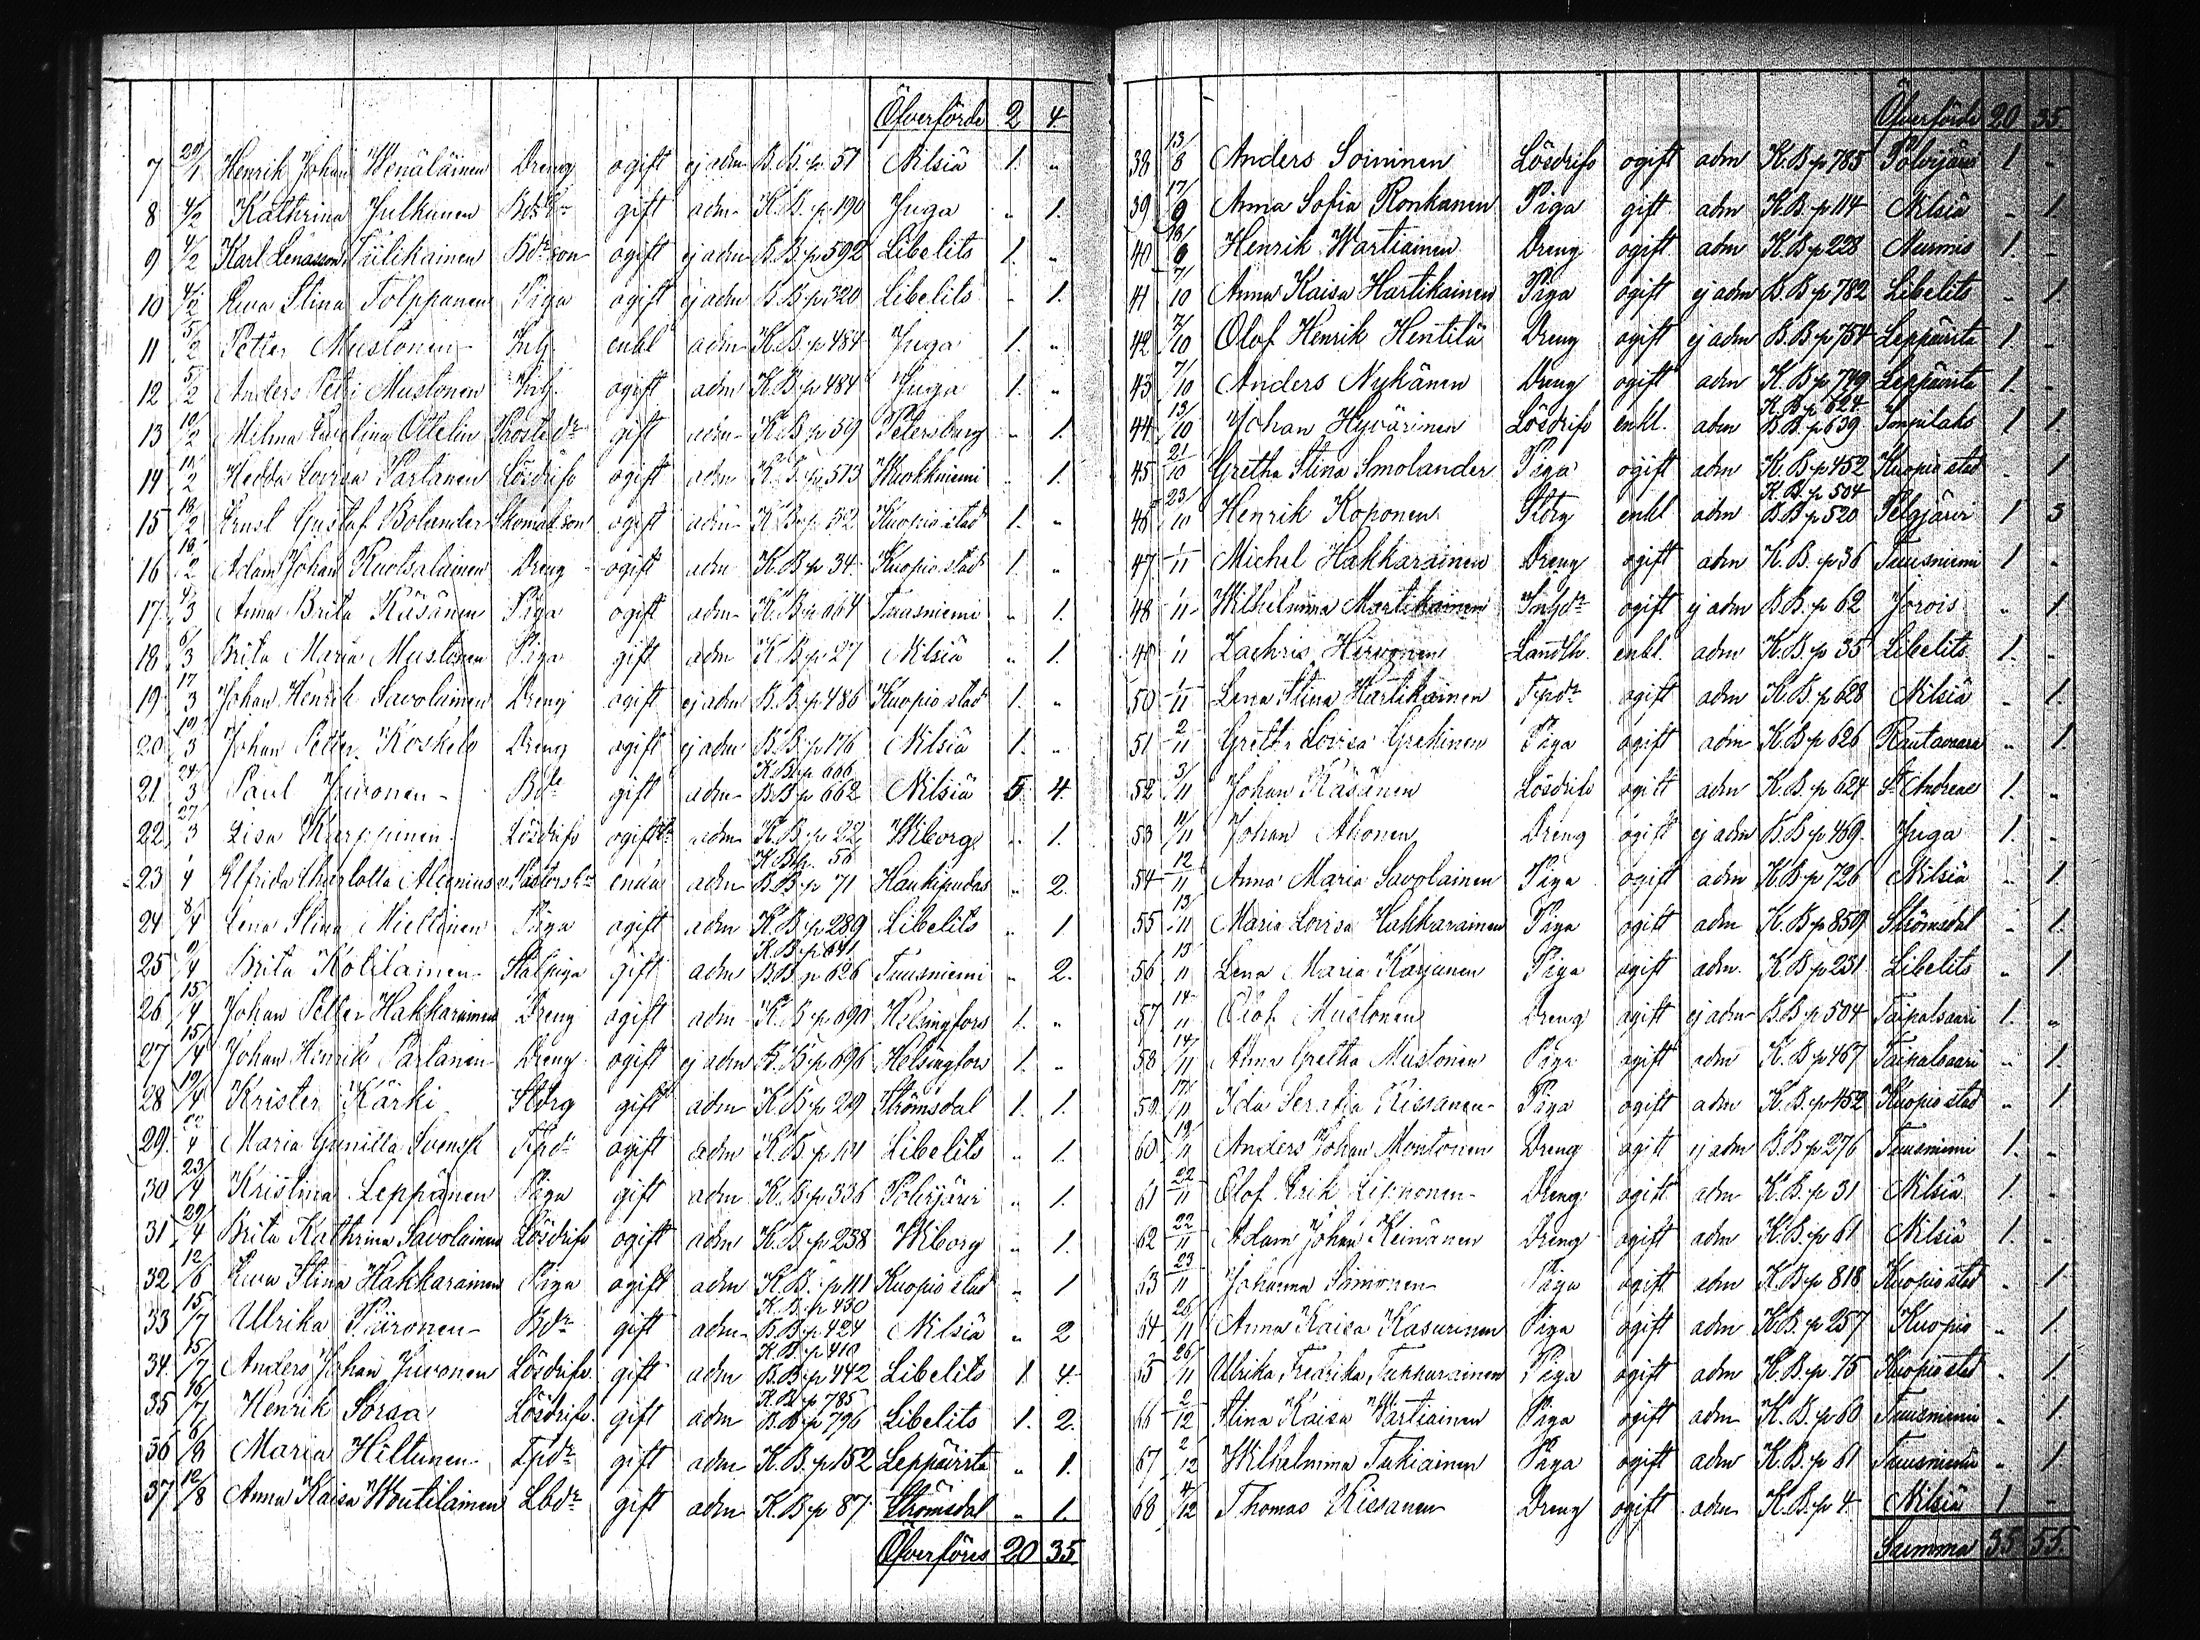 Öfverförde 2 4
7 29/1 Henrik Johan Wenäläinen Dreng ogift ej adm B.B. p 51 Nilsiä 1. "
8 4/2 Kathrina Julkunen gift adm K.B. p 190 Juga " 1.
9 4/2 Karl Lenasson Tiilikainen Bdeson ogift ej adm B.B. p 592 Libelits 1. "
10 4/2 Ewa Stina Tolppanen Piga ogift ej adm B.B. p 320 Libelits " 1.
11 5/2 Petter Mustonen Inh. enkl adm K.B. p 484 Juga 1. "
12 5/2 Anders Petr Mustonen Inh. ogift adm K.B. p 484 Juga 1. "
13 10/2 Milma Karolina Ottelin gift adm K.B. p 519 Petersburg " 1.
14 2 Hedda Lovisa Partanen Lösdrifv ogift adm 513 Muokkoniemi " 1.
15 18/2 Ernst Gustaf Bolander Skomak.son ogift adm K.B. p 52 Kuopio stad 1. "
16 18/2 Adam Johan Ruotsalainen Dreng ogift adm K.B. p 34 Kuopio stad 1. "
17 4/3 Anna Brita Räsänen Piga ogift adm K.B. p 664 Tuusniemi " 1.
18 6/3 Brita Maria Mustonen Piga gift adm K.B. p 27 Nilsiä " 1.
19 17/3 Johan Henrik Savolainen Dreng ogift ej adm B.B. p 486 Kuopio stad 1. "
20 19/3 Johan Petter Koskelo Dreng ogift ej adm B.B. p 176 Nilsiä 1. "
K.B. p 606
21 24/3 Paul Juvonen Bde gift adm B.B. p 662 Nilsiä 5 4.
22 27/3 Lisa Karppinen Lösdrifv ogift adm K.B. p 22 Wiborg " 1.
K.B. p. 56
23 4 Elfrida Charlotta Alcenius enka adm B.B. p 71 Haukipudas " 2.
24 8/4 Lena Stina Miettinen Piga ogift adm K.B. p 289 Libelits " 1
K.B. p 641
25 9/4 Brita Kolilainen Statpiga gift adm B.B. p 626 Tuusniemi " 2.
26 15/4 Johan Petter Hakkarainen Dreng ogift adm K.B. p 690 Helsingfors 1. "
27 15/4 Johan Henrik Partanen Dreng ogift ej adm K.B. p 696 Helsingfors 1. "
28 19/4 Krister Kärki Stdrg gift adm K.B. p 219 Strömsdal 1. 1.
29 22/4 Maria Gunilla Svensk Tpdr ogift adm K.B. p 141 Libelits " 1.
30 23/4 Kristina Leppänen Piga gift adm K.B. p 336 Polvijärvi " 1.
31 29/4 Brita Kathrina Savolainen Lösdrifv ogift adm K.B. p 238 Wiborg " 1.
32 12/6 Ewa Stina Hakkarainen Piga ogift adm K.B. p 111 Kuopio stad " 1
K.B. p 430
33 15/7 Ulrika Piironen Bdr gift adm B.B. p 424 Nilsiä " 2
K.B. p 410
34 15/7 Anders Johan Juvonen Lösdrifv. gift adm B.B. p 442 Libelits 1 4.
K.B. p 785
35 16/7 Henrik Sorsa Lösdrifv. gift adm B.B. p 796 Libelits 1. 2.
36 6/8 Maria Hiltunen Tpdr gift adm K.B. p 152 Leppävirta " 1.
37 12/8 Anna Kaisa Woutilainen Lbdr gift adm K.B. p 87 Strömsdal " 1.
Öfverföres 20 35
Öfverförde 20 35
38 13/8 Anders Soininen Lösdrifv ogift adm K.B. p 785 Polvijärvi 1 "
39 17/9 Anna Sofia Ronkanen Piga gift adm K.B. p 114 Nilsiä " 1.
40 9 Henrik Wartiainen Dreng ogift adm K.B. p 228 Nurmis 1. "
41 7/10 Anna Kaisa Hartikainen Piga ogift ej adm B.B. p 782 Libelits " 1
42 7/10 Olof Henrik Hentilä Dreng ogift ej adm B.B. p 754 Leppävirta 1 "
43 7/10 Anders Nykänen Dreng ogift adm K.B. p 749 Leppävirta 1. "
K.B. p 624
44 13/10 Johan Hyvärinen Lösdrifv enkl. adm B.B. p 639 Jorquilaks 1 1.
45 21/10 Gretha Stina Smolander Piga ogift adm K.B. p 452 Kuopio stad " 1
K.B. p 504
46 23/10 Henrik Koponen Stdrg enkl adm B.B. p 520 Pelgjärvi 1 3
47 1/11 Michel Hakkarainen Dreng ogift adm K.B. p 36 Tuusniemi 1 "
48 1/11 Wilhelmina Martikainen Inhdr ogift ej adm B.B. p 62 Jorois " 1.
49 1/11 Zachris Hirvonen Landth. enkl. adm K.B. p 35 Libelits 1. "
50 1/11 Lena Stina Hartikainen Tpdr ogift adm K.B. p 628 Nilsiä " 1.
51 2/11 Greth Lovisa Grahinen Piga ogift adm K.B. p 626 Rautavaara " 1.
52 3/11 Johan Räsänen Lösdrifv ogift adm K.B. p 624 St Andreae 1. "
53 11/11 Johan Ahonen Dreng ogift ej adm B.B. p 469. Juga 1. "
54 12/11 Anna Maria Savolainen Piga ogift adm K.B. p 726 Nilsiä " 1.
55 13/11 Maria Lovisa Hakkarainen Piga ogift adm K.B. p 859 Strömsdal " 1.
56 13/11 Lena Maria Karjunen Piga ogift adm. K.B. p 231 Libelits " 1.
57 14/11 Olof Mustonen Dreng ogift ej adm B.B. p 504 Taipalsaari 1. "
58 14/11 Anna Gretha Mustonen Piga ogift adm K.B. p 467 Taipalsaari " 1.
59 17/11 Ida Serafia Rissanen Piga ogift adm K.B. p 452 Kuopio stad " 1
60 19/11 Anders Johan Montonen Dreng ogift ej adm B.B. p 276 Tuusniemi 1. "
61 22/11 Olof Erik Lipponen Dreng ogift adm K.B. p 31 Nilsiä 1. "
62 22/11 Adam Johan Keinänen Dreng ogift adm K.B. p 61 Nilsiä 1. "
63 23/11 Johanna Simonen Piga ogift adm K.B. p 818 Kuopio stad " 1.
64 26/11 Anna Kaisa Kasurinen Piga ogift adm K.B. p 257 Kuopio " 1.
65 26/11 Ulrika Fredrika Tukkurainen Piga ogift adm K.B. p. 75 Kuopio stad " 1.
66 2/12 Stina Kaisa Wartiainen Piga ogift adm K.B. p 60 Tuusniemi " 1
67 2/12 Wilhelmina Tukiainen Piga ogift adm K.B. p 61 Tuusniemi " 1.
68 4/12 Thomas Rissanen Dreng ogift adm K.B. p 4. Nilsiä 1 "
Summa 35 55.